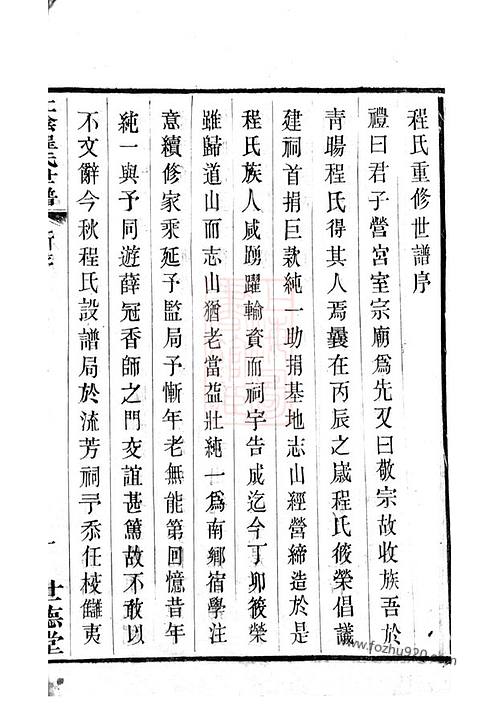 程氏重修世譜序
禮曰君子營宮室宗廟爲先又曰敬宗故收族吾於
靑暘程氏得其人焉曩在丙辰之歲程氏筱榮倡議
建祠首捐巨款純一助捐基地志山經營締造於是
程氏族人咸踴躍輸資而祠宇告成迄今丁卯筱榮
雖歸道山而志山猶老當益壯純一爲南鄉宿學注
意續修家乘延予監局予慚年老無能第回憶昔年
純一與予同遊薛冠香師之門交誼甚篤故不敢以
不文辭今秋程氏設譜局於流芳祠予忝任校讎夷
程氏世譜
一
世德堂
www.fozhu920.com